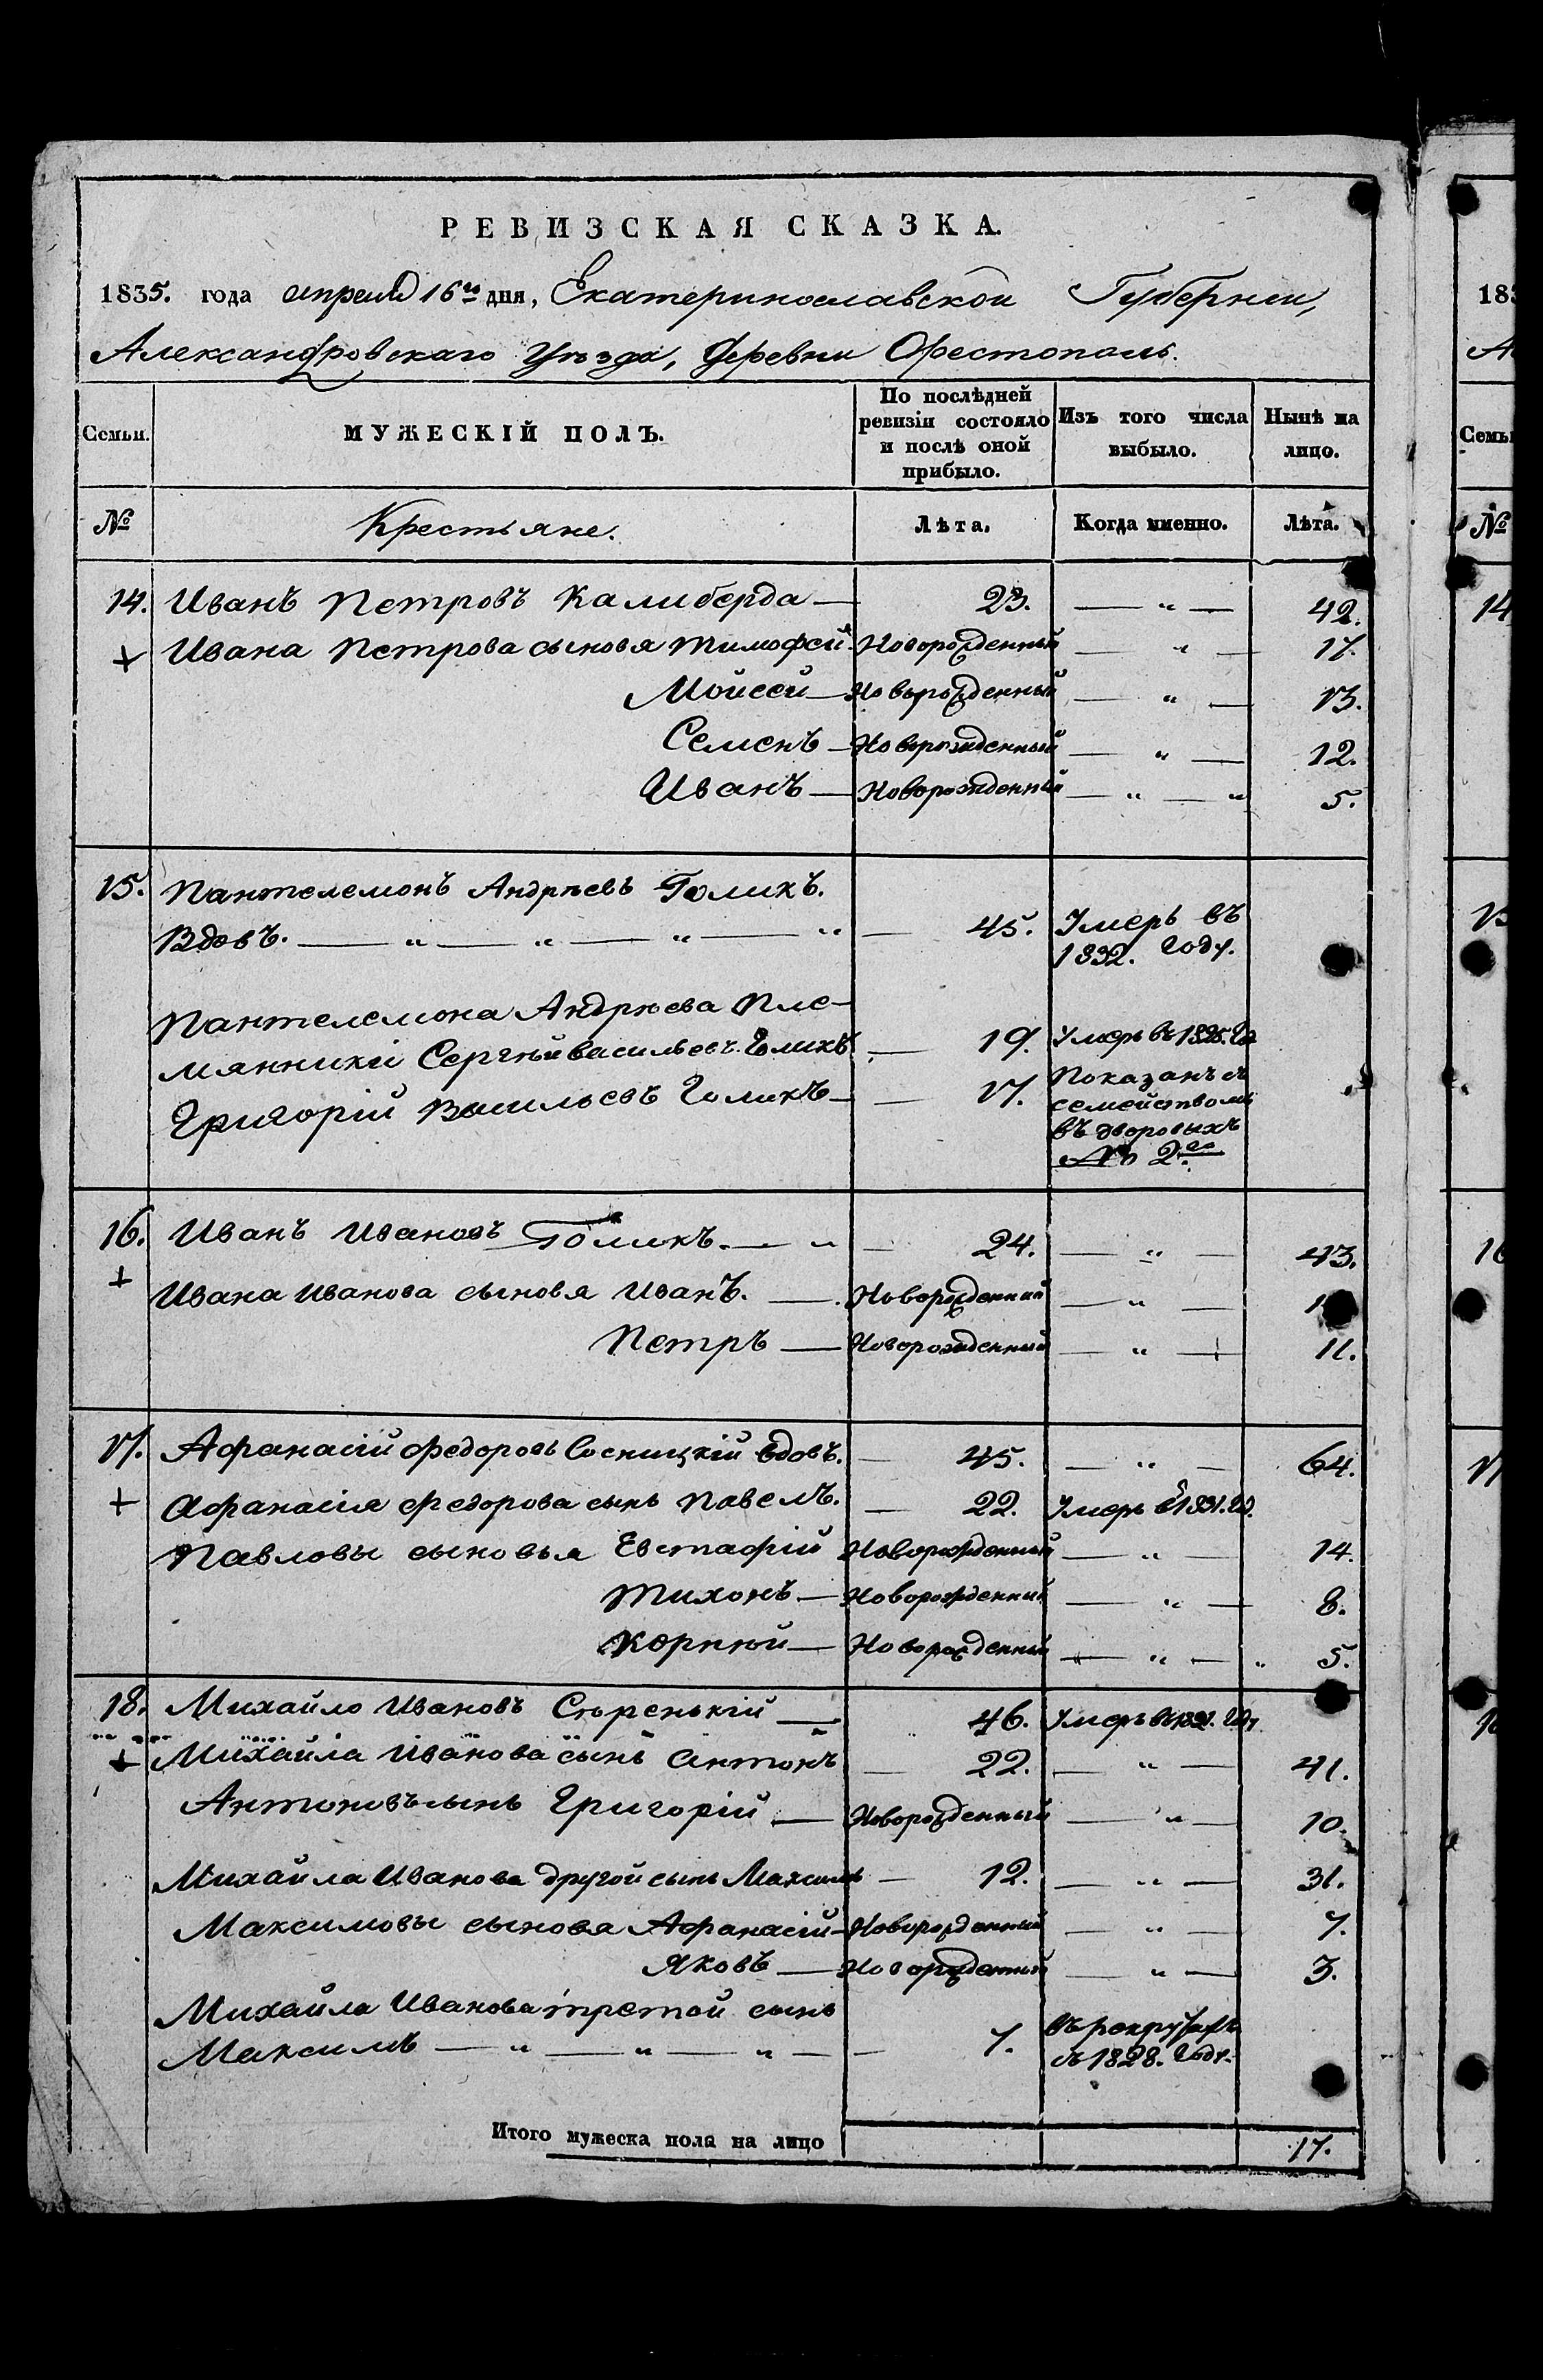 РЕВИЗСКАЯ СКАЗКА.
1835. года апреля 16го дня, Екатеринославской Губернии,
Александровскаго Уѣзда, Деревни Орестополь.
Семьи. МУЖЕСКІЙ ПОЛЪ. По послѣдней ревизіи состояло и послѣ оной прибыло. Изъ того числа выбыло. Нынѣ на лицо.
№ Крестьяне. Лѣта. Когда именно. Лѣта.
14. Иванъ Петровъ Калиберда — 23. — " — 42.
+ Ивана Петрова сыновя Тимофей Новорожденный — " — 17.
Мойсей — Новорожденный — " — 13.
Семенъ — Новорожденный — " — 12.
Иванъ — Новорожденный — " — " 5.
15. Пантелемонъ Андрѣевъ Голикъ.
Вдовъ. — " — " — " — " — 45. Умеръ въ
1832. году.
Пантелемона Андрѣева Пле-
мянники Сергѣй Васильевъ Голикъ — 19. Умеръ въ
Григорій Васильевъ Голикъ — — 17. Показанъ съ
семействомъ
въ дворовыхъ
№ 2го
16. Иванъ Ивановъ Голикъ. — " — 24. — " — 43.
+ Ивана Иванова сыновя Иванъ. — Новорожденный — " —
Петръ — Новорожденный — " — 11.
17. Афанасій Федоровъ Сосницкій вдовъ. — 45. — " — 64.
+ Афанасія Федорова сынъ Павелъ. — 22. Умеръ въ 1831. Го.
Павловы сыновья Евстафій Новорожденный — " — 14.
Тихонъ — Новорожденный — " — 8.
Корнѣй — Новорожденный — " — " 5.
18. Михайло Ивановъ Сѣренькій — 46. Умеръ въ
+ Михайла Иванова сынъ Антонъ — 22. — " — 41.
Антоновъ сынъ Григорій — Новорожденный — " — 10.
Михайла Иванова другой сынъ Максимъ — 12. — " — 31.
Максимовы сыновя Афанасій — Новорожденный — " — 7.
Яковъ — Новорожденный — " — 3.
Михайла Иванова третой сынъ
Максимъ — " — " — " — — 7. въ рекрутахъ
съ 1828. году.
Итого мужеска пола на лицо 17.
183
А
Семьи
№
14
15
16
17
18